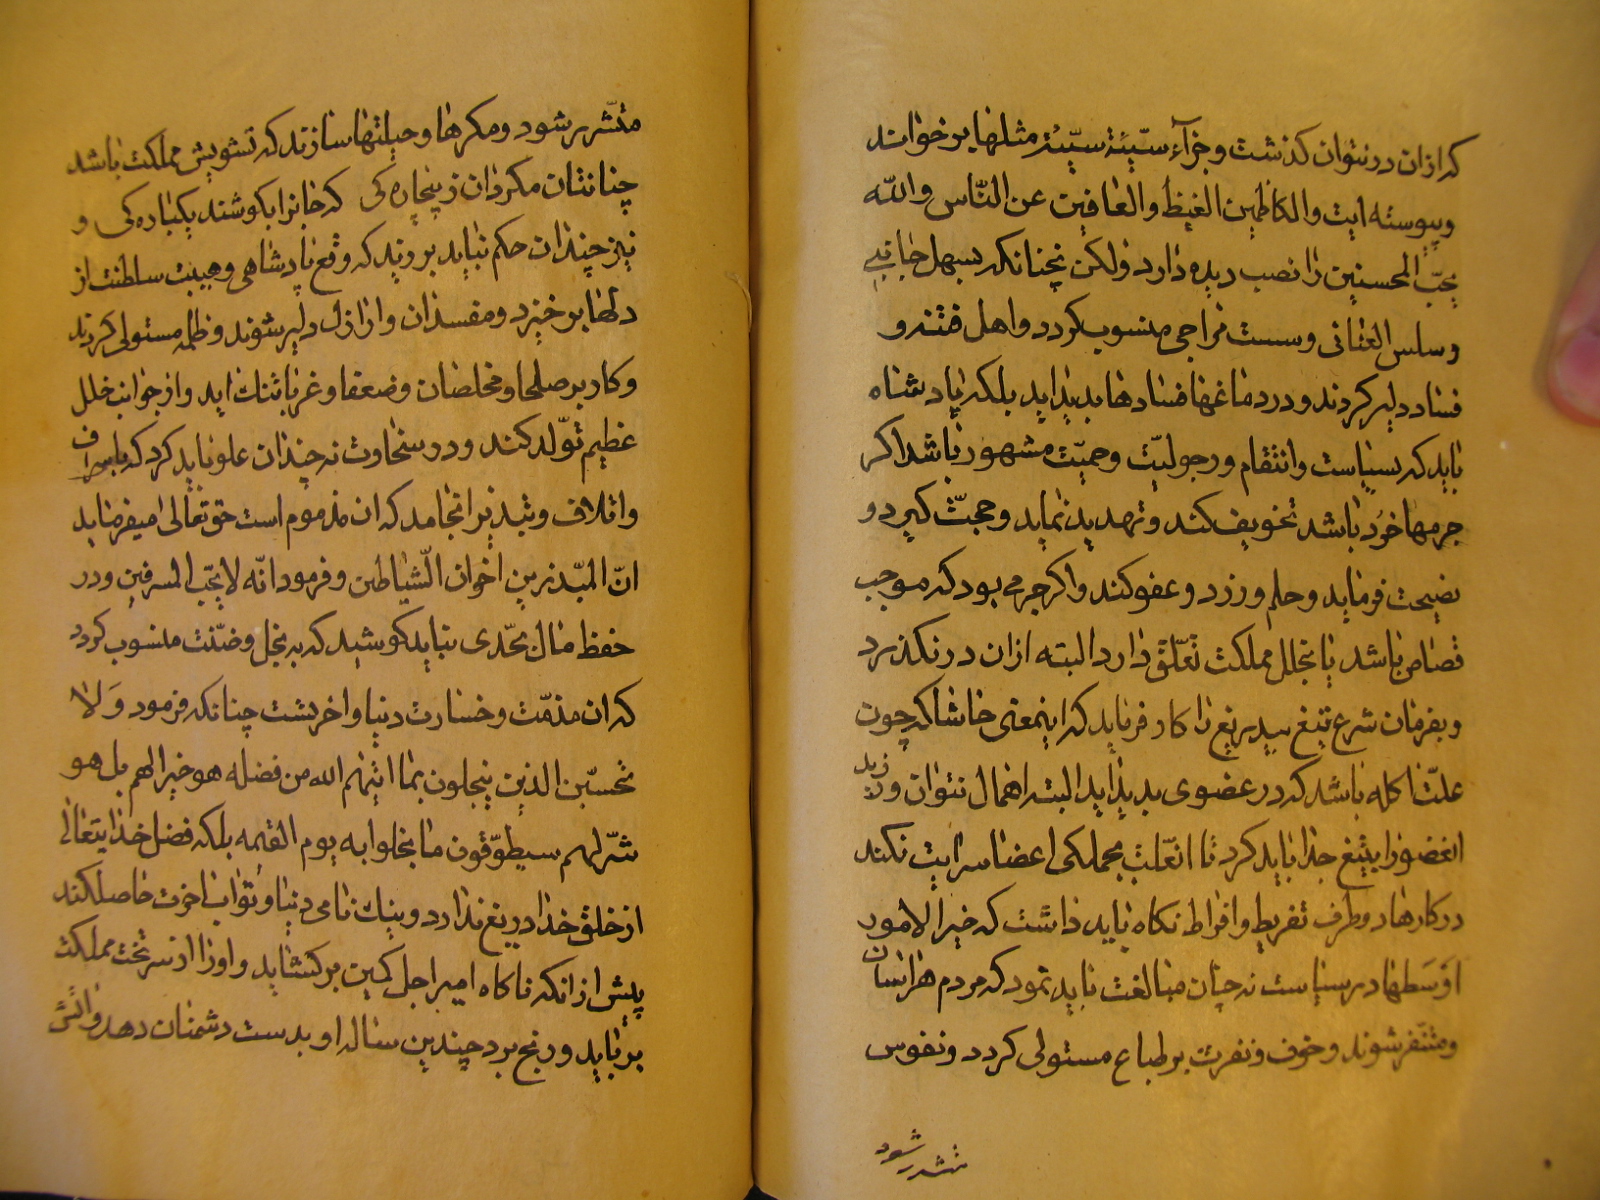 که ازان درنتوان کذشت و جزآء سیّئة سیّئة مثلها برخوانند
و پیوسته ایت و الکاظمین الغیظ و العافین عن النّاس و الله
یحبّ المحسنین را نصب دیده دارد ولکن نچنانکه بسهل جانبی
و سلس العنانی و سست مزاجی منسوب کردد و اهل فتنه و
فساد دلیر کردند و در دماغها فسادها بدیذ اید بلکه پادشاه
باید که بسیاست و انتقام و رجولیّت و حمیّت مشهور باشد اکر
جرمها خرد باشد تخویف کند و تهدید نماید و حجّت کیرد و
نصیحت فرماید و حلم ورزد و عفو کند و اکر جرمی بود که موجب
قصاص باشد یا بخلل مملکت تعلّق دارد البته ازان درنکذرد
و بفرمان شرع تیغ بیدریغ را کار فرماید که اینمعنی خاشاکه چون
علّت اکله باشد که در عضوی بدیذ اید البته اهمال نتوان ورزید
انعضورا بتیغ جدا باید کرد تا انعلّت بجملکی اعضا سرایت نکند
در کارها دو طرف تفریط و افراط نکاه باید داشت که خیر الامور
اوسطها در سیاست نه چنان مبالغت باید نمود که مردم هراسان
و متنفّر شوند و خوف و نفرت بر طباع مستولی کردد و نفوس
شود
منتشرر شود و مکرها و حیلتها سازند که تشویش مملکت باشد
چنانتان مکردان ز بیچاره کی که جانرا بکوشند یکباره کی و
نیز چندان حکم نباید ورزید که وقع پادشاهی و هیبت سلطنت از
دلها برخیزد و مفسدان و اراذل دلیر شوند و ظلمه مستولی کردند
و کار بر صلحا و مخلصان و ضعفا و غربا تنک اید و از جوانب خلل
عظیم تولّد کند و در سخاوت نه چندان غلو باید کرد که باسراف
و اتلاف و تبذیر انجامد که ان مذموم است حق تعالی میفرماید
انّ المبّذرین اخوان الشّیاطین و فرمود انّه لا یحبّ المسرفین و در
حفظ مال بحدّی نباید کوشید که به بخل و ضنّت منسوب کردد
که ان مذمّت و خسارت دنیا و اخریست چنانکه فرمود وَلا
تحسبّن الذین یبخلون بما اتیهم الله من فضله هو خیرا لهم بل هو
شرّ لهم سیطوّقون ما بخلوا به یوم القیمه بلکه فضل خدایتعالی
از خلق خدا دریغ ندارد و بنیک نامی دنیا و ثواب اخرت حاصل کند
پیش از انکه ناکاه امیر اجل کمین برکشاید و اورا از سر تخت مملکت
برباید و رنج برد چندین ساله او بدست دشمنان دهد